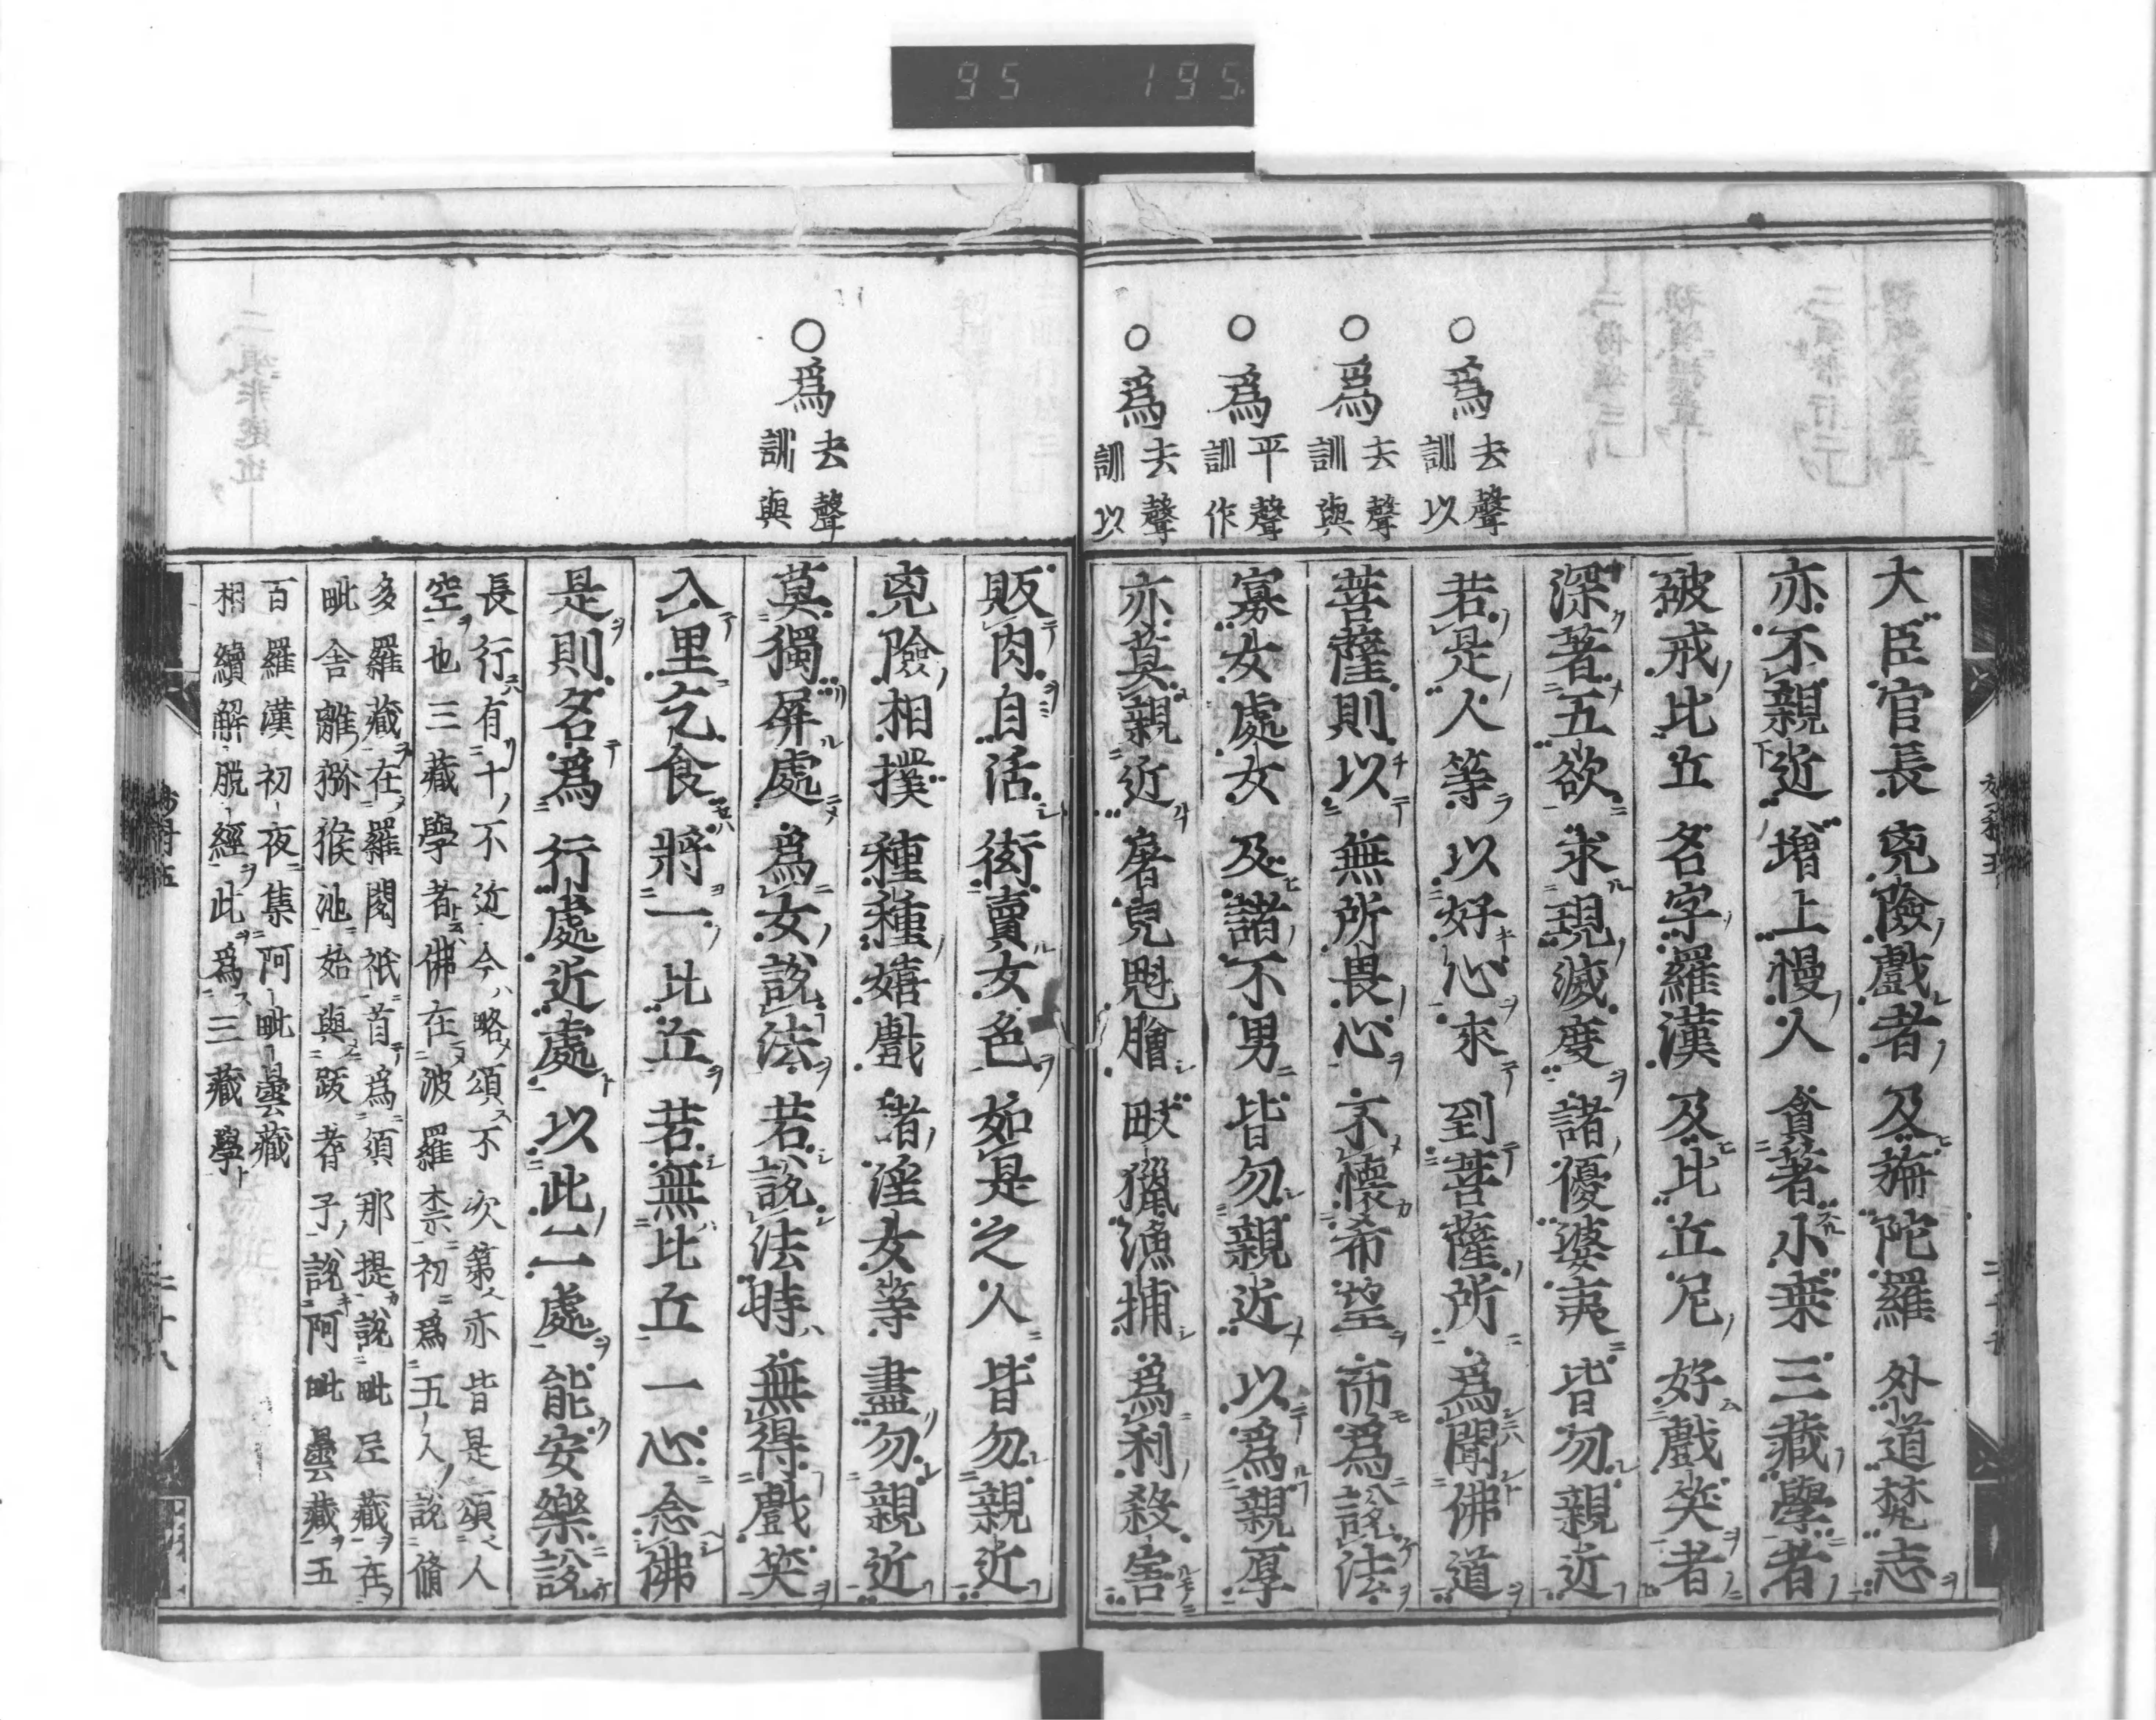 95 195
○為 去聲訓以
○為 去聲訓與
○為 平聲訓作
○為 去聲訓以
大臣官長 兇險戲者 及旃陀羅 外道梵志
亦不親近 增上慢人 貪著小乗 三藏學者
破戒比丘 名字羅漢 及比丘尼 好戲笑者
深著五欲 求現滅度 諸優婆夷 皆勿親近
若是人等 以好心來 到菩薩所 為聞佛道
菩薩則以 無所畏心 不懷希望 而為說法
寡女處女 及諸不男 皆勿親近 以為親厚
亦莫親近 屠兒魁膾 畋獵漁捕 為利殺害
○為 去聲訓與
販肉自活 衒賣女色 如是之人 皆勿親近
兇險相撲 種種嬉戲 諸淫女等 盡勿親近
莫獨屏處 為女說法 若說法時 無得戲笑
入里乞食 將一比丘 若無比丘 一心念佛
是則名為 行處近處 以此二處 能安樂說
長行有十不近今略頌不次第亦皆是頌人
空也三藏學者佛在波羅柰初為五人說脩
多羅藏在羅閱祇首為須那提說毗尼藏在
毗舍離獼猴池始與跋耆子說阿毗曇藏五
百羅漢初夜集阿毗曇藏
相續解脫經此為三藏學
二十八